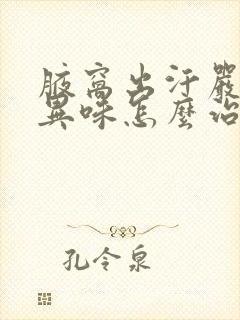 腋窩出汗嚴
異味怎麼治
孔令泉